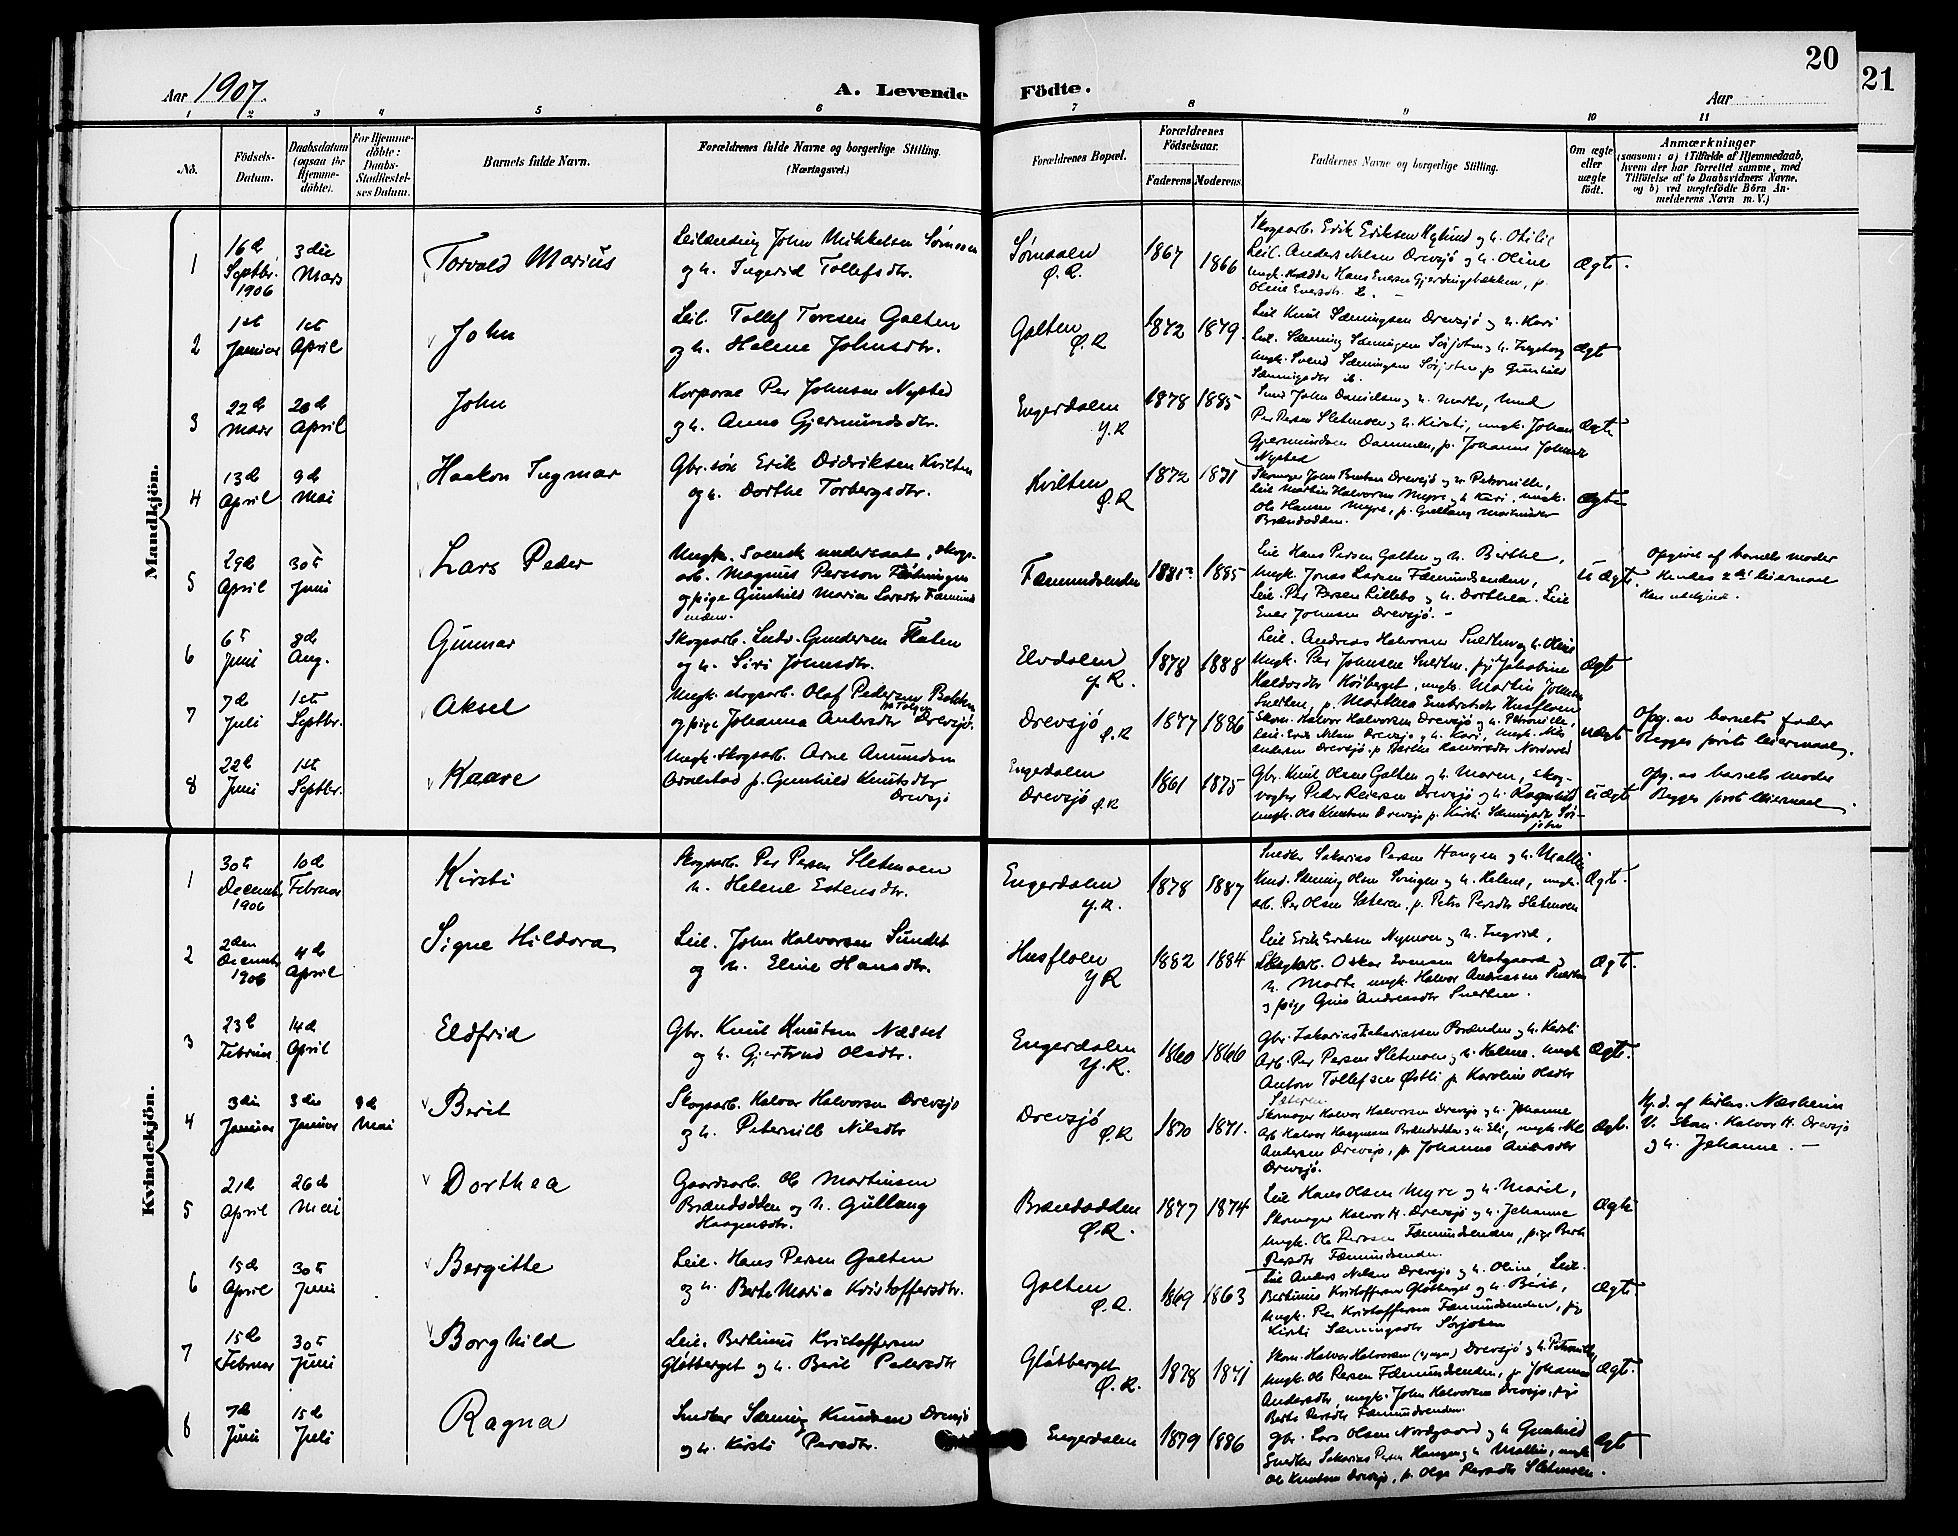 20
21
Aar 1907.
A. Levende Födte.
Aar
1 2 3 4 5 6 7 8 9 10 11
No.
Födsels-Datum.
Daabsdatum (ogsaa for Hjemme-döbte).
For Hjemme-döbte: Daabs-Stadfæstel-ses Datum.
Barnets fulde Navn.
Forældrenes fulde Navne og borgerlige Stilling. (Næringsvei.)
Forældrenes Bopæl.
Forældrenes Födselsaar.
Faderens. Moderens.
Faddernes Navne og borgerlige Stilling.
Om ægte eller uægte födt.
Anmærkninger
(saasom: a) i Tilfælde af Hjemmedaab,
hvem der har forrettet samme, med
Tilföielse af to Daabsvidners Navne,
og b) ved uægtefödte Börn An-
melderens Navn m. V.)
Mandkjön.
1
16d Septbr. 1906
3die Mars
Torvald Marius
Leilænding John Mikkelsen Sömoen
og h. Ingerid Tollefsdtr.
Sömdalen Ø.R.
1867 1866
Skogsarb. Erik Eriksen Nylund og h. Otilie
Leil. Anders Nilsen Drevsjö og h. Oline
Ægte.
2
1st Januar
1st April
John
Leil. Tollef Toresen Galten
og h. Helene Johnsdtr.
Galten Ø.R
1872 1879
Leil Knut Sæmingsen Drevsjö og h. Kari
Leil. Sæming Sæmingsen Sörjoten og h. Ingeborg
Ungk. Svend Sæmingsen Sörjoten, p Gunhild
Sæmingsdtr ib.
Ægt
3
22d Mars
28d April
John
Korporal Per Johnsen Nysted
og h. Anne Gjermundsdtr.
Engerdalen Y.R
1878 1885
Smed John Danielsen og h. Marte, Smed
Per Persen Sletmoen og h. Kirsti, ungk. Johan
Gjermundsen Dammen, p. Johanne Johnsdtr
Nysted
Ægte
4
13d April
9d Mai
Haakon Ingmar
Gbr.sön Erik Didriksen Kvilten
og h. Dorthe Torbergsdtr.
Kvilten Ø.R
1872 1871
Skomager John Bentsen Drevsjö og h. Petronille,
Leil Martin Halvorsen Myre og h Kari, ungk.
Ole Hansen Myre, p. Gullaug Martinsdtr
Brændodden.
Ægte
5
29d April
30t Juni
Lars Peder
Ungk. svensk undersaat, skogs-
arb. Magnus Persson
og pige Gunhild Maria Larsdtr Fæmund-
enden.
Fæmundsenden
1881 1885
Leil Hans Persen Galten og h. Berthe,
Ungk. Jonas Larsen Fæmundsenden,
Leil. Per Persen Lillebo og h. Dorthea. Leil
Ener Johnsen Drevsjö.
Uægt.
Opgivet af barnets moder
Hendes 2det leiermaal
6
6t Juni
8d Aug.
Gunnar
Skogsarb. Ludv. Gundersen Flaten
og h. Siri Johnsdtr.
Elvdalen Y.R.
1878 1888
Leil. Andreas Halvorsen Snerten og h. Oline
Ungk. Per Johnsen Snerten, pige Jakobine
Haldosdtr Höiberget, ungk. Martin Johnsen
Snerten, p. Marthea Embretsdtr Husfloen
Ægt
7
7d Juli
1st Septbr.
Aksel
Ungk. skogsarb. Olaf Pedersen Bakken
fra Tolgen
og pige Johanna Andersdtr Drevsjö.
Drevsjö Ø.R
1877 1886
Skom. Halvor Halvorsen Drevsjö og h. Petronille,
Leil. Erik Nilsen Drevsjö og h. Kari, Ungk. Nils
Andersen Drevsjö, p Berthe Halvorsdtr Nordvold
uægt
Opg. av barnets fader
Begges förste leiermaal.
8
22d Juni
1st Septbr.
Kaare
Ungk. Skogsarb. Arne Amundsen
p. Gunhild Knutsdtr
Drevsjö
Engerdalen
Drevsjö Ø.R
1861 1875
Gbr. Knut Olsen Galten og h. Maren, skog-
vogter Peder Reiersen Drevsjö og h. Ragnhild
ungk. Ole Knutsen Drevsjö p. Kirsti Sæmingsdtr Sör-
joten
uægt
Opg. av barnets moder
Begges förste leiermaal
Kvindekjön.
1
30t Decembr. 1906
10d Februar
Kirsti
Skogsarb. Per Persen Sletmoen
h. Helene Estensdtr.
Engerdalen Y.R.
1878 1887
Snedker Sakarias Persen Haugen og h. Mallin
Smd. Sæming Olsen Svingen og h. Helene, ungk.
arb. Per Olsen Sæteren, p. Petra Persdtr Sletmoen
Ægt.
2
2den Decembr 1906
4d April
Signe Hildora
Leil. John Halvorsen Sundet
og h. Eline Hansdtr.
Husfloen Y.R
1882 1884
Leil Erik Eriksen Nymoen og h. Ingrid,
Skogsarb. Oskar Evensen Westgaard og
h. Marte, ungk. Halvor Andreassen Snerten
og pige Gina Andreasdtr Snerten.
Ægt.
3
23d Februar
14d April
Eldfrid
Gbr. Knut Knutsen Næsset
og h. Gjertrud Olsdtr.
Engerdalen Y.R.
1860 1866
Gbr. Sakarias Zakariassen Brænden og h. Kersti
Arb. Per Persen Sletmoen og h. Helene, Ungk
Anton Tollefsen Östli p Karoline Olsdtr
Sæteren
Ægt.
4
3die Januar
3die Januar
9d Mai
Berit
Skogsarb. Halvor Halvorsen Drevsjö
og h. Peternille Nilsdtr
Drevsjö Ø.R
1870 1871.
Skomager Halvor Halvorsen Drevsjö og h. Johanne
Arb Halvor Haagensen Brændodden og h. Eli, ungk. Nil
Andersen Drevsjö, p Johanna Andersdtr
Drevsjö.
Ægt.
Hj.d. af kirkes. Næsheim
V. Skom. Halvor H. Drevsjö
og h. Johanne.
5
21d April
26d Mai
Dorthea
Gaardsarb. Ole Martinsen
Brændodden og h. Gullaug
Haagensdtr.
Brændodden Ø.R.
1877 1874
Leil Hans Olsen Myre og h. Marit,
Skomager Halvor H. Drevsjö og h. Johanne
Ungk. Ole Persen Fæmundsenden, pige Berte
Persdtr Fæmundsenden
Ægte
6
15d April
30t Juni
Bergitte
Leil. Hans Persen Galten
og h. Berte Maria Kristoffersdtr.
Galten Ø.R.
1869 1863
Leil Anders Nilsen Drevsjö og h. Oline, Leil.
Bertinus Kristoffersen Glötberget og h. Berit,
Ungk. Per Kristoffersen Fæmundsenden, pige
Kirsti Sæmingsdtr Sörjoten
Ægt
7
15d Februar
30t Juni
Borghild
Leil. Bertinus Kristoffersen
Glötberget og h. Berit Pedersdtr
Glötberget Ø.R.
1878 1871
Skom. Halvor Halvorsen (yngre) Drevsjö og h. Petronille,
Ungk. Ole Persen Fæmundsenden, p Johanne
Andersdtr, ungk. John Halvorsen Drevsjö, pige
Berte Persdtr Fæmundsenden.
Ægt.
8
7d Juni
15d Juli
Ragna
Snedker Sæming Knudsen Drevsjö
og h. Kirsti Persdtr.
Engerdalen
1879 1886
Gbr. Lars Olsen Nordgaard og h Gunhild
Snedker Sakarias Persen Haugen og h Mallin, ungk
Ole Knutsen Drevsjö, p. Olga Persdtr Sletmoen.
Ægt